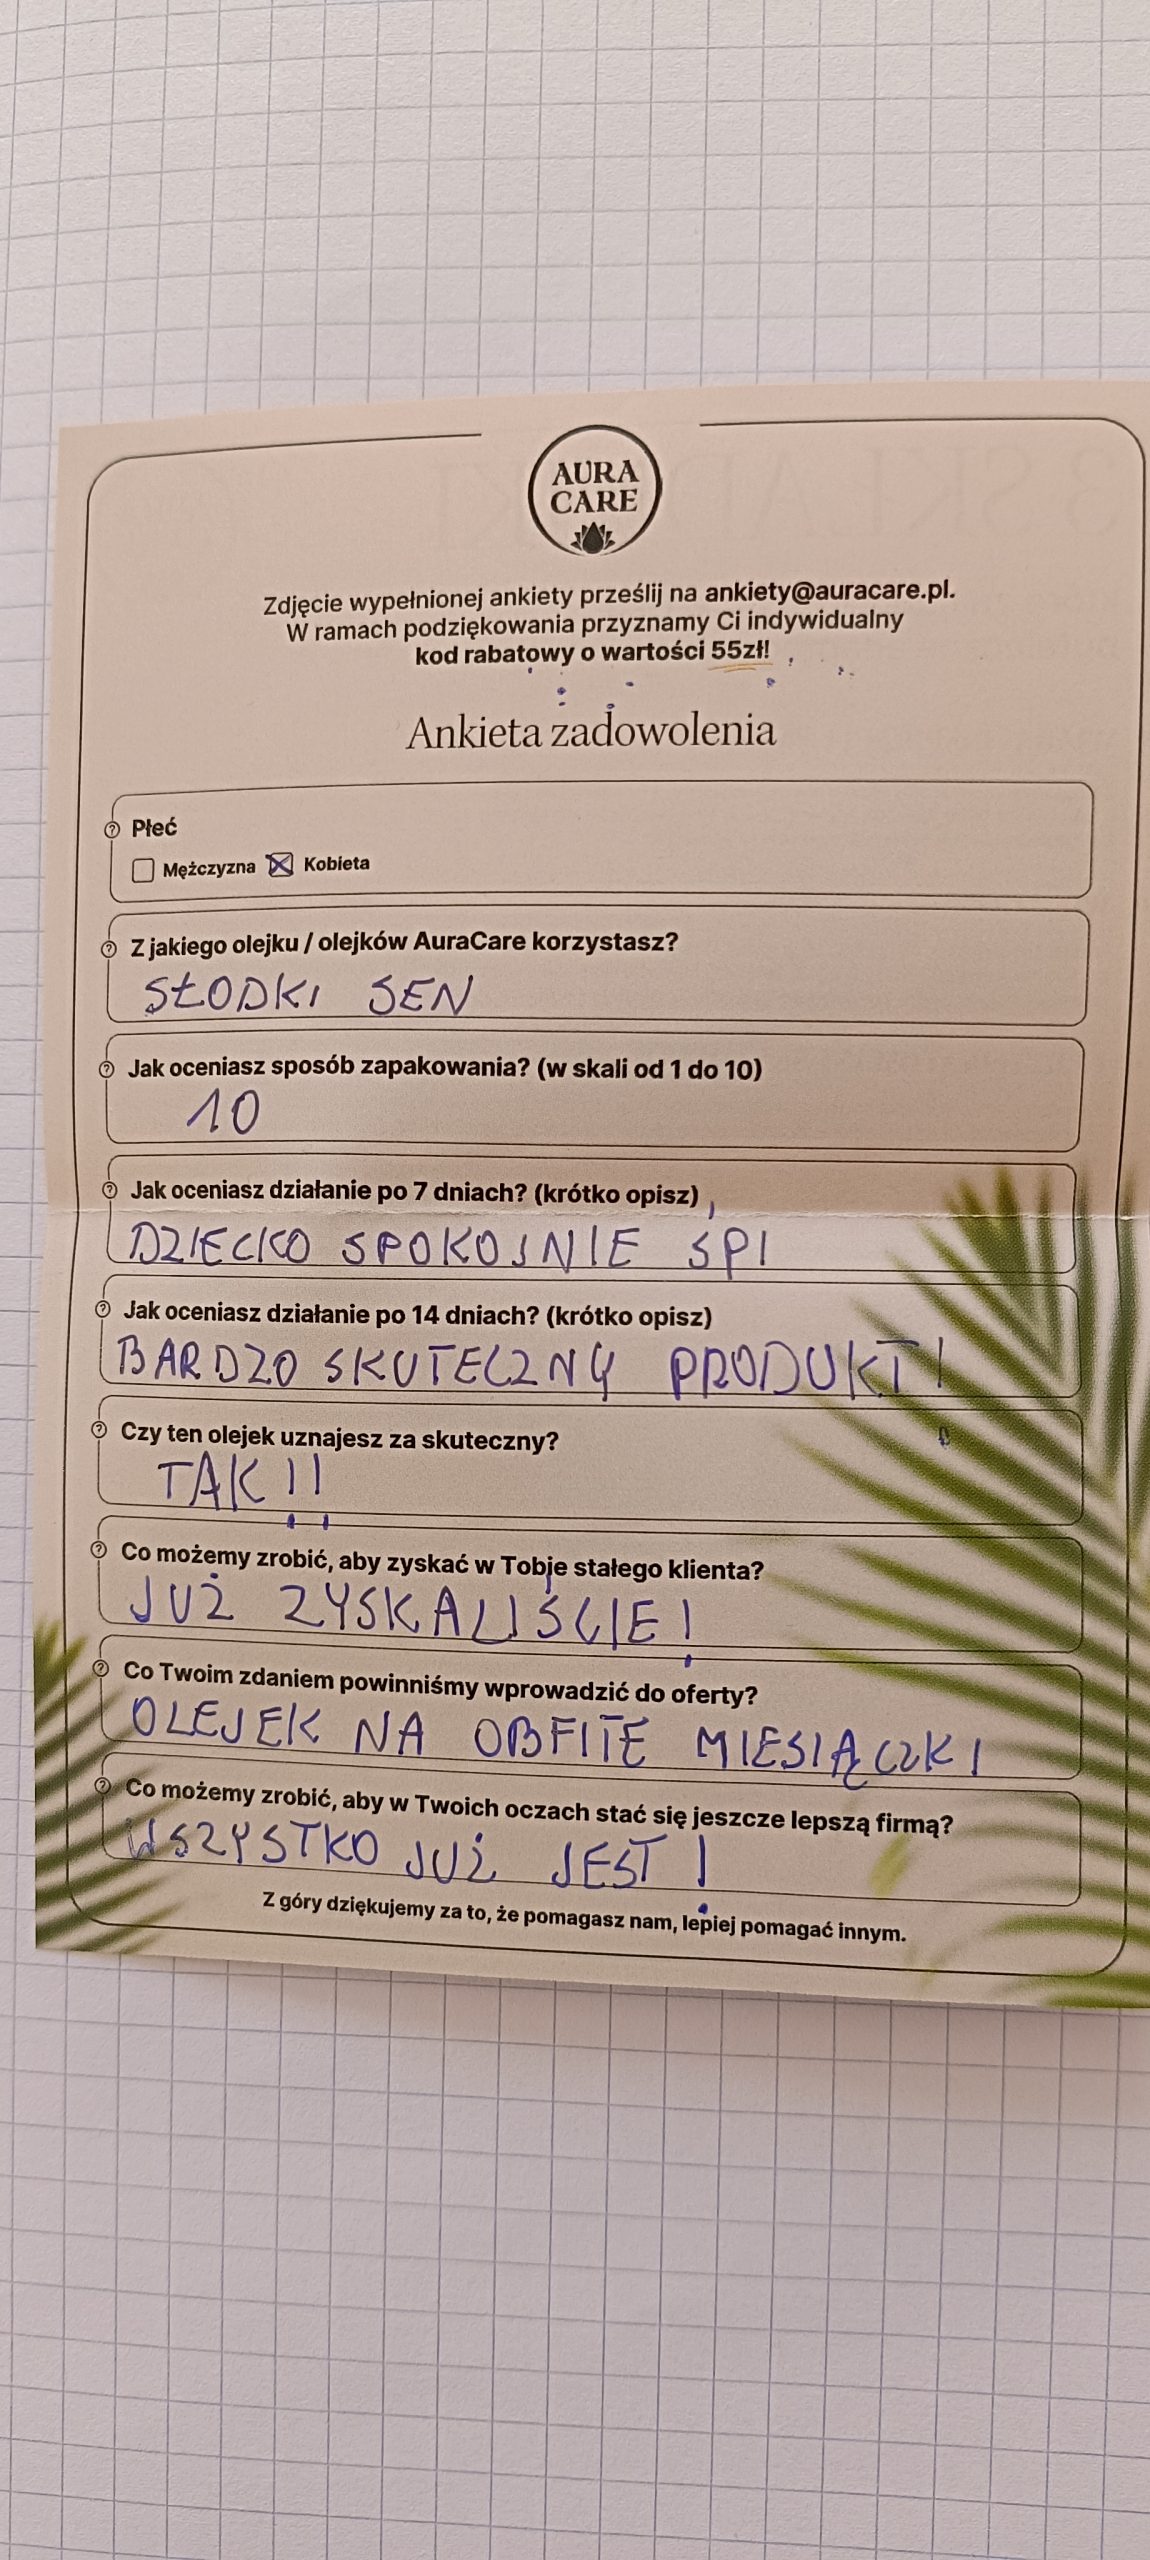 AURA
CARE
Zdjęcie wypełnionej ankiety prześlij na ankiety@auracare.pl.
W ramach podziękowania przyznamy Ci indywidualny
kod rabatowy o wartości 55zł!
Ankieta zadowolenia
Płeć
Mężczyzna Kobieta
Z jakiego olejku / olejków AuraCare korzystasz?
SŁODKI SEN
Jak oceniasz sposób zapakowania? (w skali od 1 do 10)
10
Jak oceniasz działanie po 7 dniach? (krótko opisz)
DZIECKO SPOKOJNIE ŚPI
Jak oceniasz działanie po 14 dniach? (krótko opisz)
BARDZO SKUTECZNY PRODUKT!
Czy ten olejek uznajesz za skuteczny?
TAK!!
Co możemy zrobić, aby zyskać w Tobie stałego klienta?
JUŻ ZYSKALIŚCIE!
Co Twoim zdaniem powinniśmy wprowadzić do oferty?
OLEJEK NA OBFITE MIESIĄCZKI
Co możemy zrobić, aby w Twoich oczach stać się jeszcze lepszą firmą?
WSZYSTKO JUŻ JEST!
Z góry dziękujemy za to, że pomagasz nam, lepiej pomagać innym.